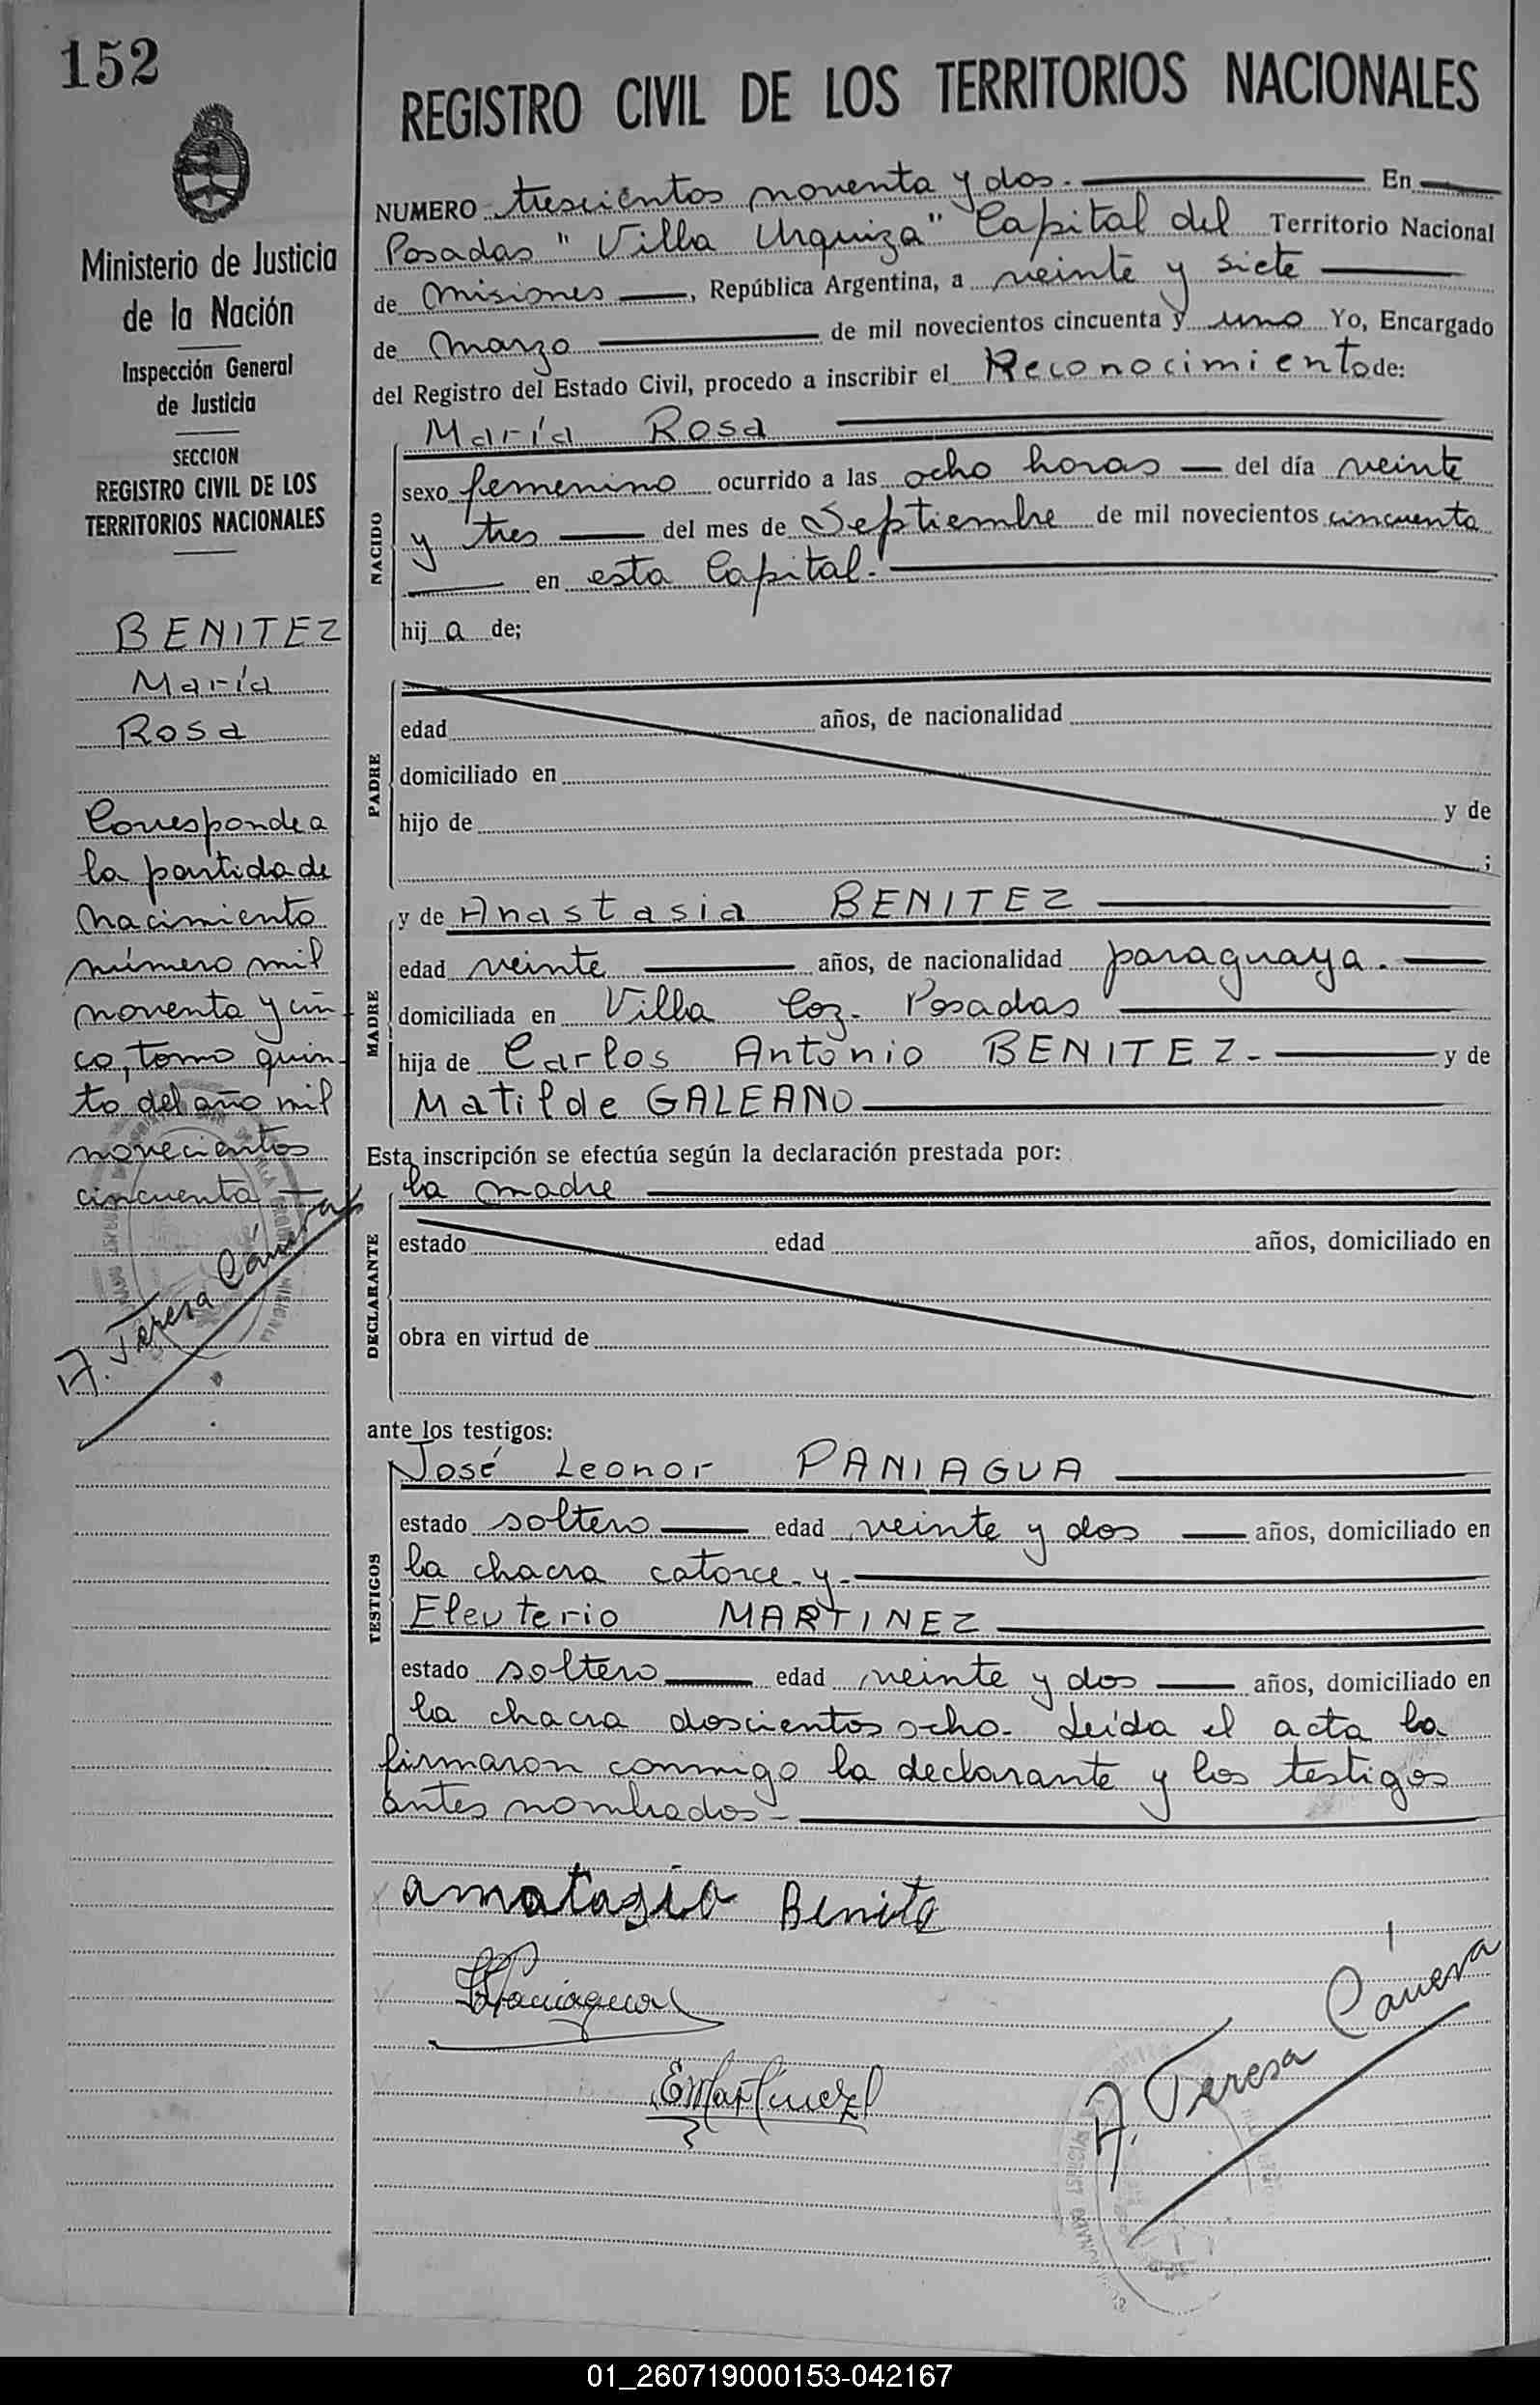 152
REGISTRO CIVIL DE LOS TERRITORIOS NACIONALES
Ministerio de Justicia
de la Nación
Inspección General
de Justicia
SECCION
REGISTRO CIVIL DE LOS
TERRITORIOS NACIONALES
BENITEZ
María
Rosa
Corresponde a
la partida de
nacimiento
número mil
noventa y cin-
co, tomo quin-
to del año mil
novecientos
cincuenta
A. Teresa Cánera
NUMERO trescientos noventa y dos.- En
Posadas "Villa Urquiza" Capital del Territorio Nacional
de Misiones, República Argentina, a veinte y siete
de Marzo de mil novecientos cincuenta y uno Yo, Encargado
del Registro del Estado Civil, procedo a inscribir el Reconocimiento de:
NACIDO
María Rosa
sexo femenino ocurrido a las ocho horas del día veinte
y tres del mes de Septiembre de mil novecientos cincuenta
en esta Capital.-
hij a de;
PADRE
edad años, de nacionalidad
domiciliado en
hijo de y de
;
MADRE
y de Anastasia BENITEZ
edad veinte años, de nacionalidad paraguaya.
domiciliada en Villa Coz. Posadas
hija de Carlos Antonio BENITEZ.- y de
Matilde GALEANO
Esta inscripción se efectúa según la declaración prestada por:
la madre
DECLARANTE
estado edad años, domiciliado en
obra en virtud de
ante los testigos:
TESTIGOS
José Leonor PANIAGUA
estado soltero edad veinte y dos años, domiciliado en
la chacra catorce y
Eleuterio MARTINEZ
estado soltero edad veinte y dos años, domiciliado en
la chacra doscientos ocho. Leída el acta la
firmaron conmigo la declarante y los testigos
antes nombrados.-
anatasia Benite
Paniagua
EMartinez
A. Teresa Cánera
01_260719000153-042167